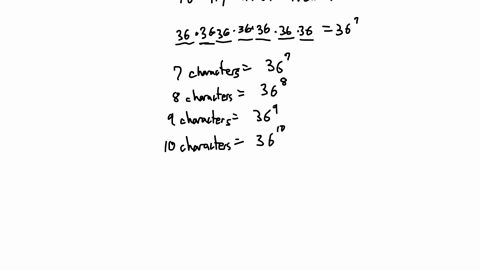 36 · 36 36 · 36 · 36 · 36 · 36 = 36⁷
7 characters = 36⁷
8 characters = 36⁸
9 characters = 36⁹
10 characters = 36¹⁰